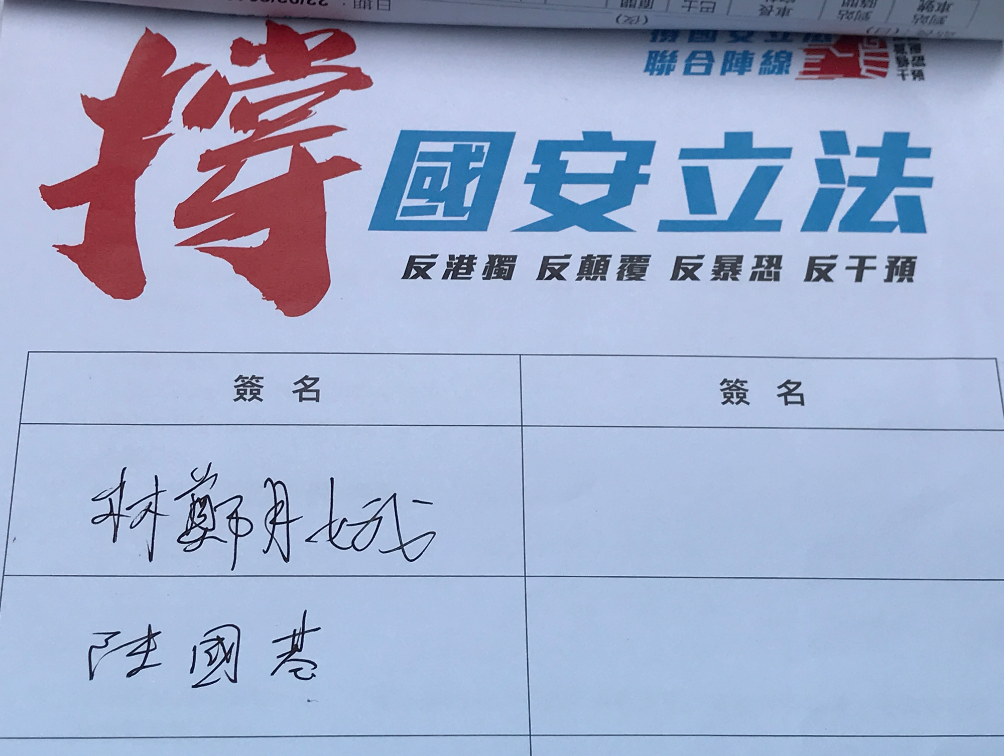 撐國安立法
聯合陣線
撐
國安立法
反港獨 反顛覆 反暴恐 反干預
簽名 簽名
林鄭月娥
陳國基